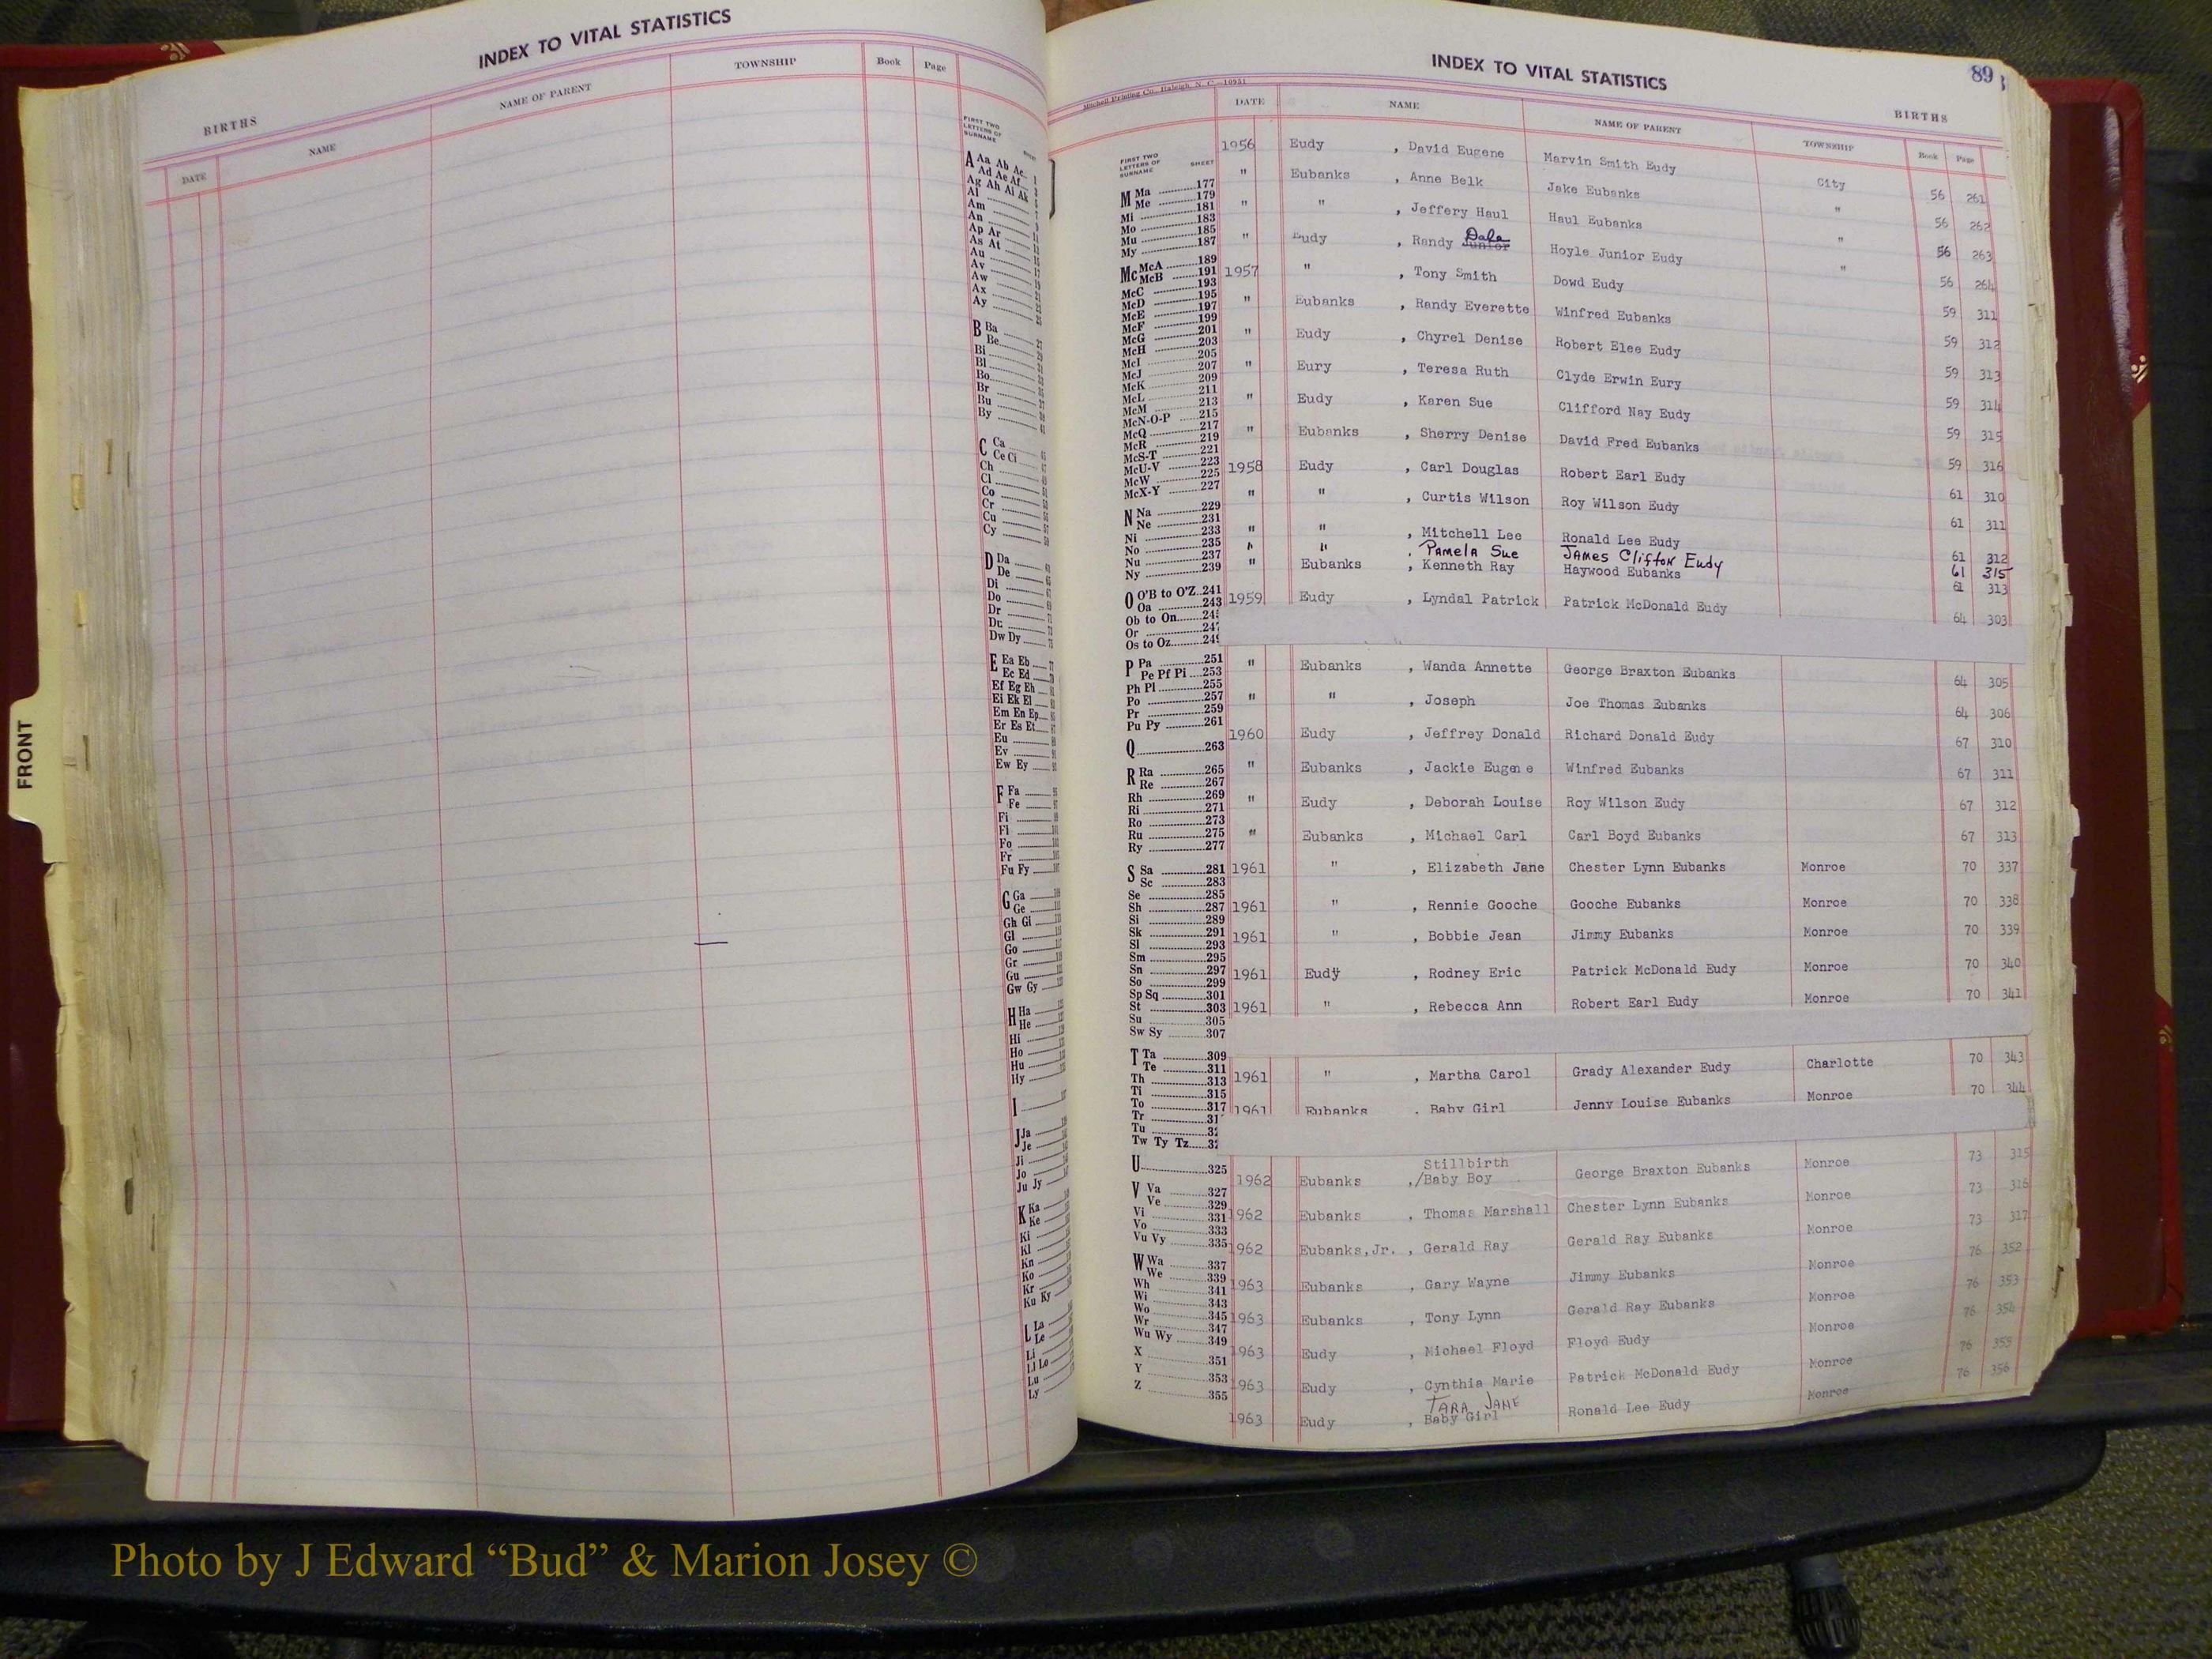 INDEX TO VITAL STATISTICS
BIRTHS
DATE NAME NAME OF PARENT TOWNSHIP Book Page
FIRST TWO LETTERS OF SURNAME
A Aa Ab Ac
Ad Ae Af
Ag Ah Ai Ak
Al
Am
An
Ap Ar
As At
Au
Av
Aw
Ax
Ay
B Ba
Be
Bi
Bl
Bo
Br
Bu
By
C Ca
Ce Ci
Ch
Cl
Co
Cr
Cu
Cy
D Da
De
Di
Do
Dr
Du
Dw Dy
E Ea Eb
Ec Ed
Ef Eg Eh
Ei Ek El
Em En Ep
Er Es Et
Eu
Ev
Ew Ey
F Fa
Fe
Fi
Fl
Fo
Fr
Fu Fy
G Ga
Ge
Gh Gi
Gl
Go
Gr
Gu
Gw Gy
H Ha
He
Hi
Ho
Hu
Hy
I
J Ja
Je
Ji
Jo
Ju Jy
K Ka
Ke
Ki
Kl
Kn
Ko
Kr
Ku Ky
L La
Le
Li
Ll Lo
Lu
Ly
FRONT
INDEX TO VITAL STATISTICS
89
Mitchell Printing Co., Raleigh, N. C.—10951
BIRTHS
DATE NAME NAME OF PARENT TOWNSHIP Book Page
FIRST TWO LETTERS OF SURNAME SHEET
M Ma 177
Me 179
Mi 181
Mo 183
Mu 185
My 187
Mc McA 189
McB 191
McC 193
McD 195
McE 197
McF 199
McG 201
McH 203
McI 205
McJ 207
McK 209
McL 211
McM 213
McN-O-P 215
McQ 217
McR 219
McS-T 221
McU-V 223
McW 225
McX-Y 227
N Na 229
Ne 231
Ni 233
No 235
Nu 237
Ny 239
O O'B to O'Z 241
Oa 243
Ob to On
Or
Os to Oz
P Pa 251
Pe Pf Pi 253
Ph Pl 255
Po 257
Pr 259
Pu Py 261
Q 263
R Ra 265
Re 267
Rh 269
Ri 271
Ro 273
Ru 275
Ry 277
S Sa 281
Sc 283
Se 285
Sh 287
Si 289
Sk 291
Sl 293
Sm 295
Sn 297
So 299
Sp Sq 301
St 303
Su 305
Sw Sy 307
T Ta 309
Te 311
Th 313
Ti 315
To 317
Tr
Tu
Tw Ty Tz
U 325
V Va 327
Ve 329
Vi 331
Vo 333
Vu Vy 335
W Wa 337
We 339
Wh 341
Wi 343
Wo 345
Wr 347
Wu Wy 349
X 351
Y 353
Z 355
1956 Eudy , David Eugene Marvin Smith Eudy City 56 261
" Eubanks , Anne Belk Jake Eubanks " 56 262
" " , Jeffery Haul Haul Eubanks " 56 263
" Eudy , Randy Junior Dale Hoyle Junior Eudy " 56 264
1957 " , Tony Smith Dowd Eudy 59 311
" Eubanks , Randy Everette Winfred Eubanks 59 312
" Eudy , Chyrel Denise Robert Elee Eudy 59 313
" Eury , Teresa Ruth Clyde Erwin Eury 59 314
" Eudy , Karen Sue Clifford Nay Eudy 59 315
" Eubanks , Sherry Denise David Fred Eubanks 59 316
1958 Eudy , Carl Douglas Robert Earl Eudy 61 310
" " , Curtis Wilson Roy Wilson Eudy 61 311
" " , Mitchell Lee Ronald Lee Eudy 61 312
" " , Pamela Sue James Clifton Eudy 61 315
" Eubanks , Kenneth Ray Haywood Eubanks 61 313
1959 Eudy , Lyndal Patrick Patrick McDonald Eudy 64 303
" Eubanks , Wanda Annette George Braxton Eubanks 64 305
" " , Joseph Joe Thomas Eubanks 64 306
1960 Eudy , Jeffrey Donald Richard Donald Eudy 67 310
" Eubanks , Jackie Eugene Winfred Eubanks 67 311
" Eudy , Deborah Louise Roy Wilson Eudy 67 312
" Eubanks , Michael Carl Carl Boyd Eubanks 67 313
1961 " , Elizabeth Jane Chester Lynn Eubanks Monroe 70 337
1961 " , Rennie Gooche Gooche Eubanks Monroe 70 338
1961 " , Bobbie Jean Jimmy Eubanks Monroe 70 339
1961 Eudy , Rodney Eric Patrick McDonald Eudy Monroe 70 340
1961 " , Rebecca Ann Robert Earl Eudy Monroe 70 341
1961 " , Martha Carol Grady Alexander Eudy Charlotte 70 343
1961 Eubanks , Baby Girl Jenny Louise Eubanks Monroe 70 344
Stillbirth
1962 Eubanks ,/Baby Boy George Braxton Eubanks Monroe 73 315
1962 Eubanks , Thomas Marshall Chester Lynn Eubanks Monroe 73 316
1962 Eubanks,Jr. , Gerald Ray Gerald Ray Eubanks Monroe 73 317
1963 Eubanks , Gary Wayne Jimmy Eubanks Monroe 76 352
1963 Eubanks , Tony Lynn Gerald Ray Eubanks Monroe 76 353
1963 Eudy , Michael Floyd Floyd Eudy Monroe 76 354
1963 Eudy , Cynthia Marie Patrick McDonald Eudy Monroe 76 355
TARA JANE
1963 Eudy , Baby Girl Ronald Lee Eudy Monroe 76 356
Photo by J Edward “Bud” & Marion Josey ©